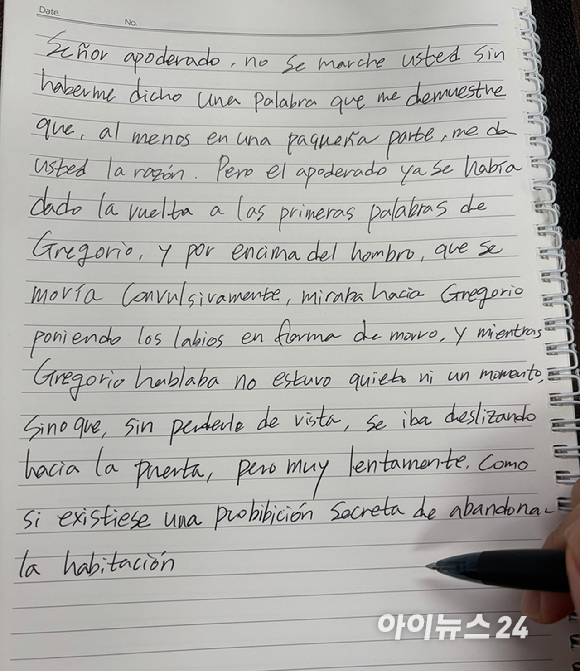 Date
No.
Señor apoderado, no se marche usted sin
haberme dicho una palabra que me demuestre
que, al menos en una paqueña parte, me da
usted la razón. Pero el apoderado ya se había
dado la vuelta a las primeras palabras de
Gregorio, y por encima del hombro, que se
movía convulsivamente, miraba hacia Gregorio
poniendo los labios en forma de morro, y mientras
Gregorio hablaba no estuvo quieto ni un momento,
sino que, sin perderle de vista, se iba deslizando
hacia la puerta, pero muy lentamente, como
si existiese una prohibición secreta de abandona
la habitación
아이뉴스24